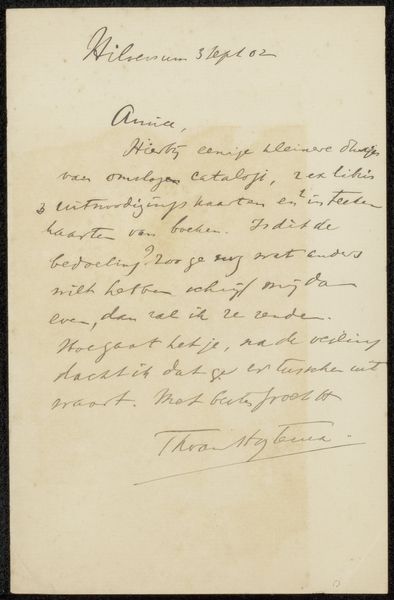 Hilversum 3 Sept 02
Amice,
Hierbij eenige kleinere dingen
van omslagen catalogi, 2 ex libris
3 uitnoodigingskaarten en 2 inteeken
kaarten van boeken. Is dit de
bedoeling? Zoo ge nog wat anders
wilt hebben schrijf mij dan
even, dan zal ik ze zenden.
Hoe gaat het je, na de veiling
dacht ik dat ge er tusschen uit
waart. Met beste groet tt
Th van Hoytema